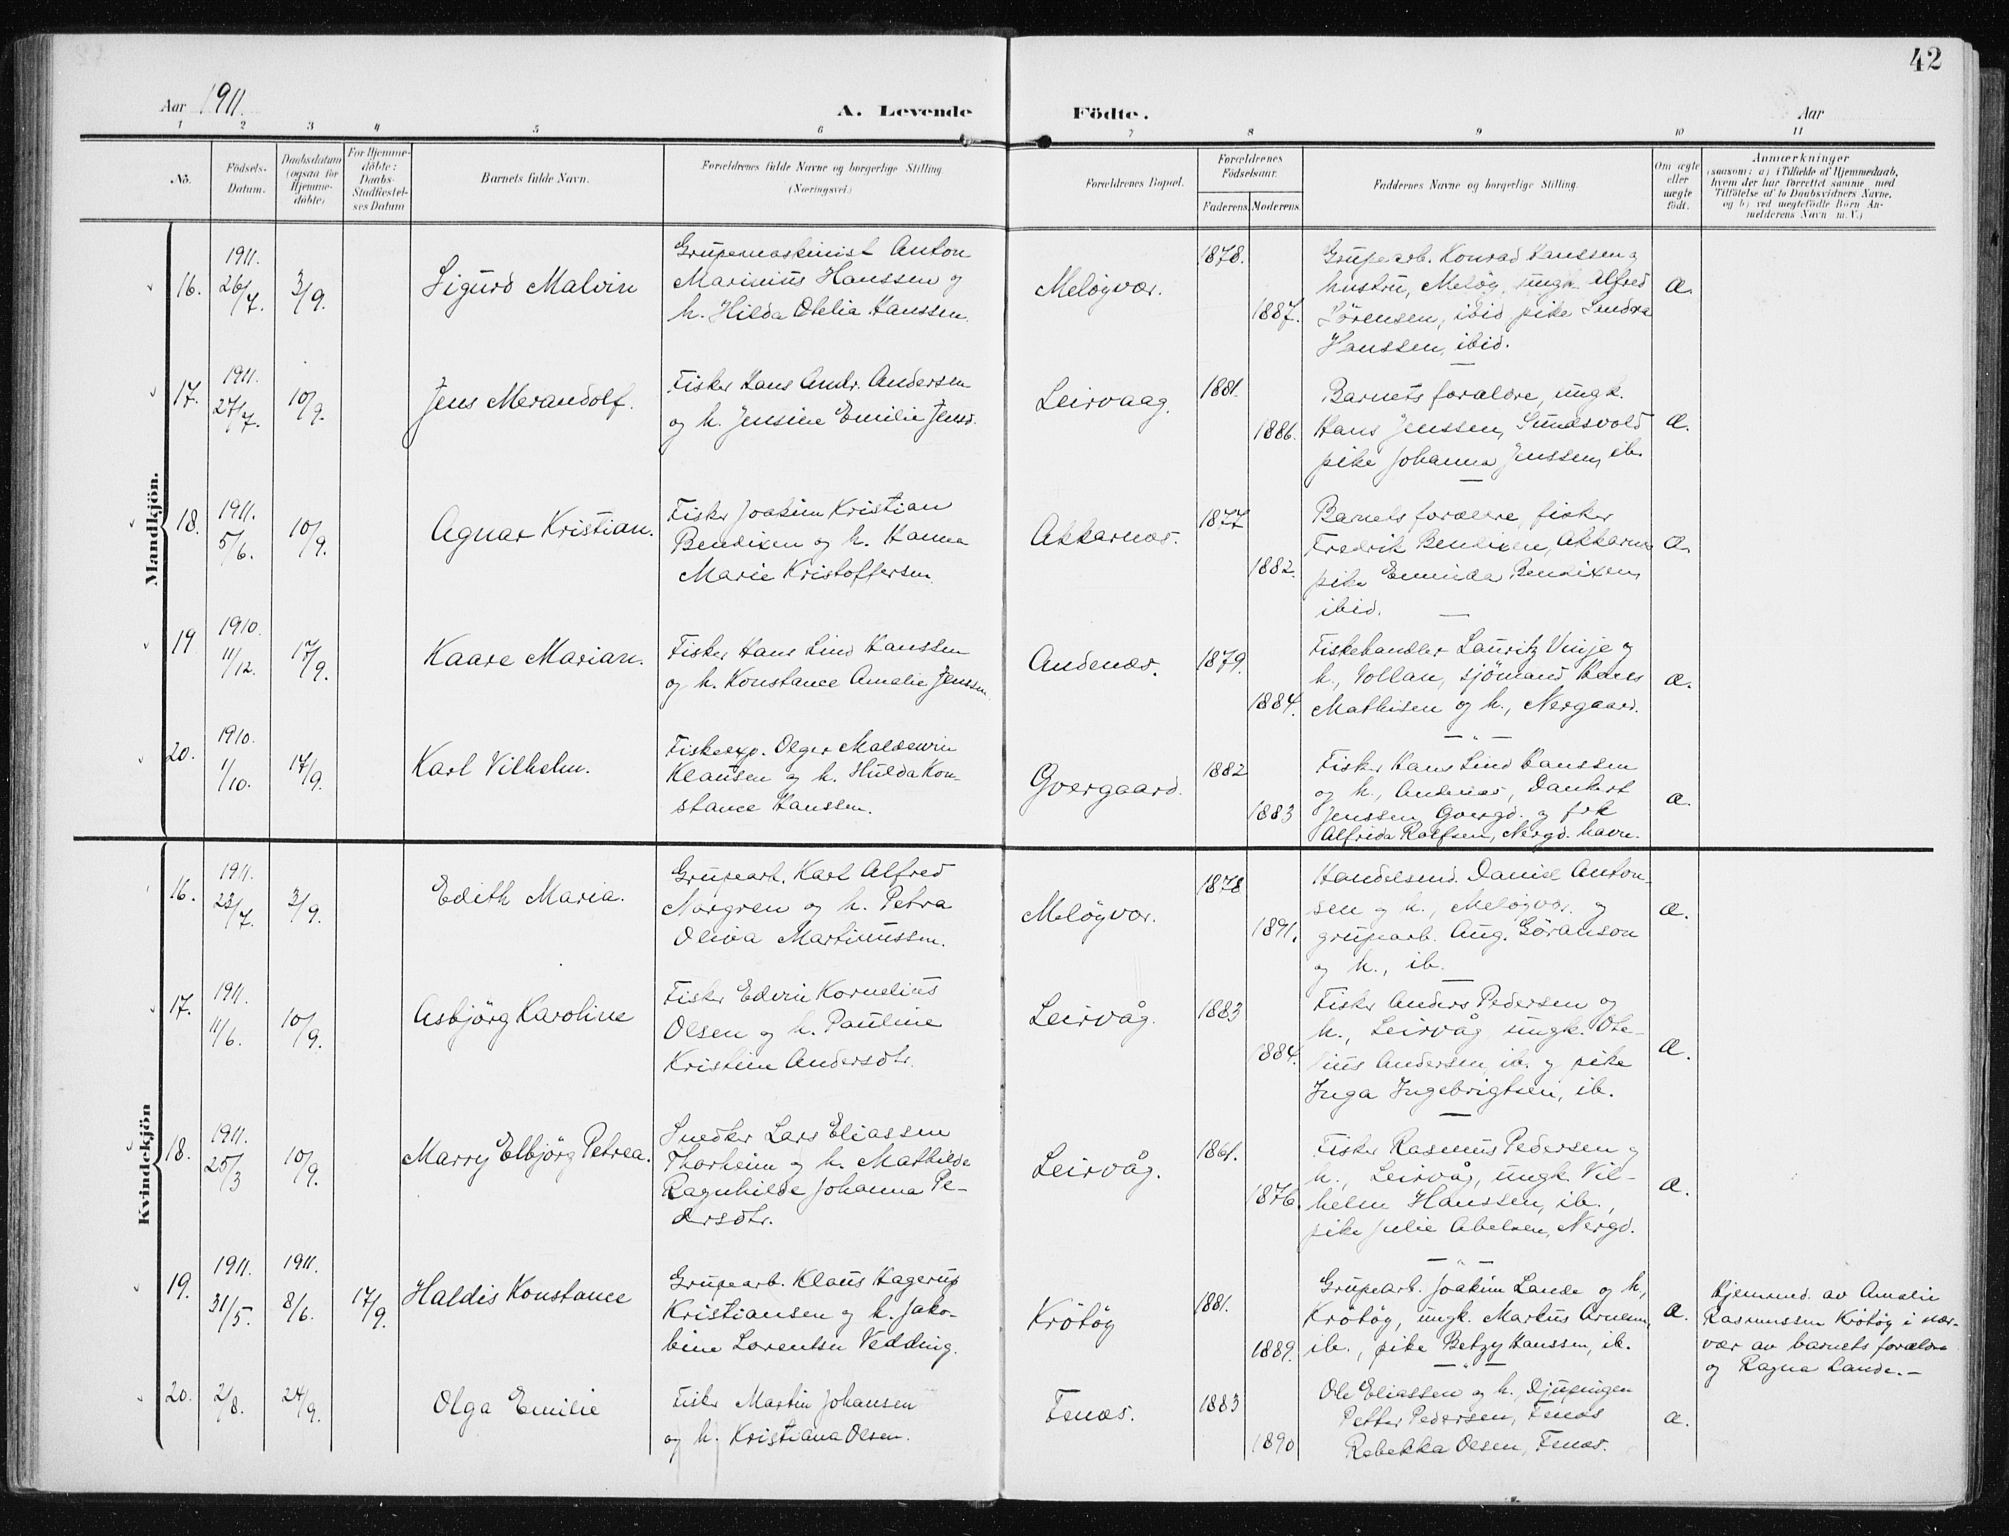 42
Aar 1911. A. Levende Födte. Aar
1 2 3 4 5 6 7 8 9 10 11
No. Födsels-Datum. Daabsdatum (ogsaa for Hjemmedöbte) For Hjemmedöbte: Daabs-Stadfæstelses Datum Barnets fulde Navn. Forældrenes fulde Navne og borgerlige Stilling. (Næringsvei.) Forældrenes Bopæl. Forældrenes Födselsaar. Faderens. Moderens. Faddernes Navne og borgerlige Stilling. Om ægte eller uægte födt. Anmærkninger (saasom: a) i Tilfælde af Hjemmedaab, hvem der har forrettet samme med Tilföielse af to Daabsvidners Navne, og b) ved uægtefödte Börn Anmelderens Navn m. V.)
Mandkjön.
16. 1911. 26/7. 3/9. Sigurd Malvin
Grupemaskinist Anton
Marinius Hanssen og
h. Hilda Otelia Hanssen.
Meløyvær. 1878. 1887.
Grupearb. Konrad Hanssen og
hustru, Meløy, ungk. Alfred
Sörensen, ibid pike Sandra
Hanssen, ibid.
æ.
17. 1911. 27/7. 10/9. Jens Merandolf.
Fisker Hans Andr. Andersen
og h. Jensine Emilie Jensd.
Leirvaag. 1881. 1886.
Barnets forældre, ungk.
Hans Jenssen, Sundsvold
pike Johanna Jenssen, ib.
æ.
18. 1911. 5/6. 10/9. Agnar Kristian.
Fisker Joakim Kristian
Bendixen og h. Hanna
Marie Kristoffersen.
Akkarnæs. 1877 1882.
Barnets forældre, fisker
Fredrik Bendixen, Akkarnæs
pike Bendixen,
ibid.
æ.
19 1910. 11/12. 17/9. Kaare Marian.
Fisker Hans Lind Hanssen
og h. Konstance Amalie Jenssen.
Andenæs. 1879. 1884.
Fiskehandler Lauritz Vinje og
h., Vollan, sjömand Hans
Mathisen og h., Nergaard.
æ.
20. 1910. 1/10. 17/9. Karl Vilhelm.
Fiskeexp. Olger Maldewin
Klausen og h. Hulda Kon-
stance Hanssen.
Gvergaard. 1882 1883
Fisker Hans Lind Hanssen
og h., Andenæs, Dankert
Jenssen, Gvergd. og frk
Alfrida Rolfsen, Nergd. havn.
æ.
Kvindekjön
16. 1911. 23/7. 3/9. Edith Maria.
Grupearb. Karl Alfred
Norgren og h. Petra
Oliva Martinussen.
Meløyvær. 1878 1891.
Handelsmd. Daniel Anton-
sen og h., Meløyvær. og
grupearb. Aug. Göranson
og h., ib.
æ.
17. 1911. 11/6. 10/9. Asbjörg Karoline
Fisker Edvin Kornelius
Olsen og h. Pauline
Kristine Andersdtr.
Leirvåg. 1883 1884.
Fisker Anders Pedersen og
h., Leirvåg, ungk. Ote-
lius Andersen, ib. og pike
Inga Ingebrigtsen, ib.
æ.
18. 1911. 25/3 10/9. Marry Elbjörg Petrea.
Snedker Lars Eliassen
Thorheim og h. Mathilde
Ragnhilde Johanna Pe-
dersdtr.
Leirvåg. 1861. 1876.
Fisker Rasmus Pedersen og
h., Leirvåg, ungk. Vil-
helm Hanssen, ib.,
pike Julie Abelsen, Nergd.
æ.
19. 1911. 31/5. 1911. 8/6. 17/9. Haldis Konstance
Grupearb. Klaus Hagerup
Kristiansen og h. Jako-
bine Lorentse Vedding.
Krötöy 1881. 1889.
Grupearb. Joakim Lande og h,
Krötöy, ungk. Markus Arntsen,
ib., pike Betzy Hanssen, ib.
æ.
Hjemmed. av Amalie
Rasmussen Krötöy i nær-
vær av barnets forældre
og Ragna Lande.-
20. 2/8. 24/9. Olga Emilie
Fisker Martin Johansen
og h. Kristiana Olsen.
Fenæs. 1883 1890
Ole Eliassen og h., Djupingen
Petter Pedersen, Fenæs
Rebekka Olsen, Fenæs.
æ.